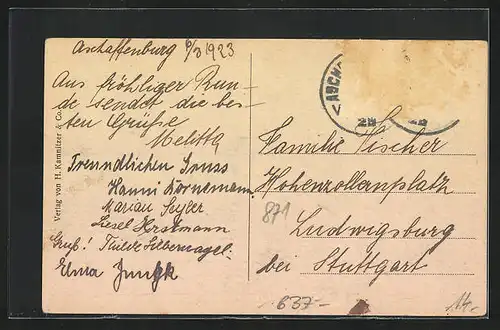 Aschaffenburg 6/3 1923
Aus fröhliger Run-
de sendet die bes-
ten Grüsse
Melitta
Freundlichen Gruss
Hanni Kornemann
Marian Seyler
Liesel Horstmann
Gruß! Thilde Silbernagel.
Elma
Verlag von H. Kämnitzer & Co.
ASCH
Familie Fischer
Hohenzollernplatz
871
Ludwigsburg
bei Stuttgart
637-
14.-